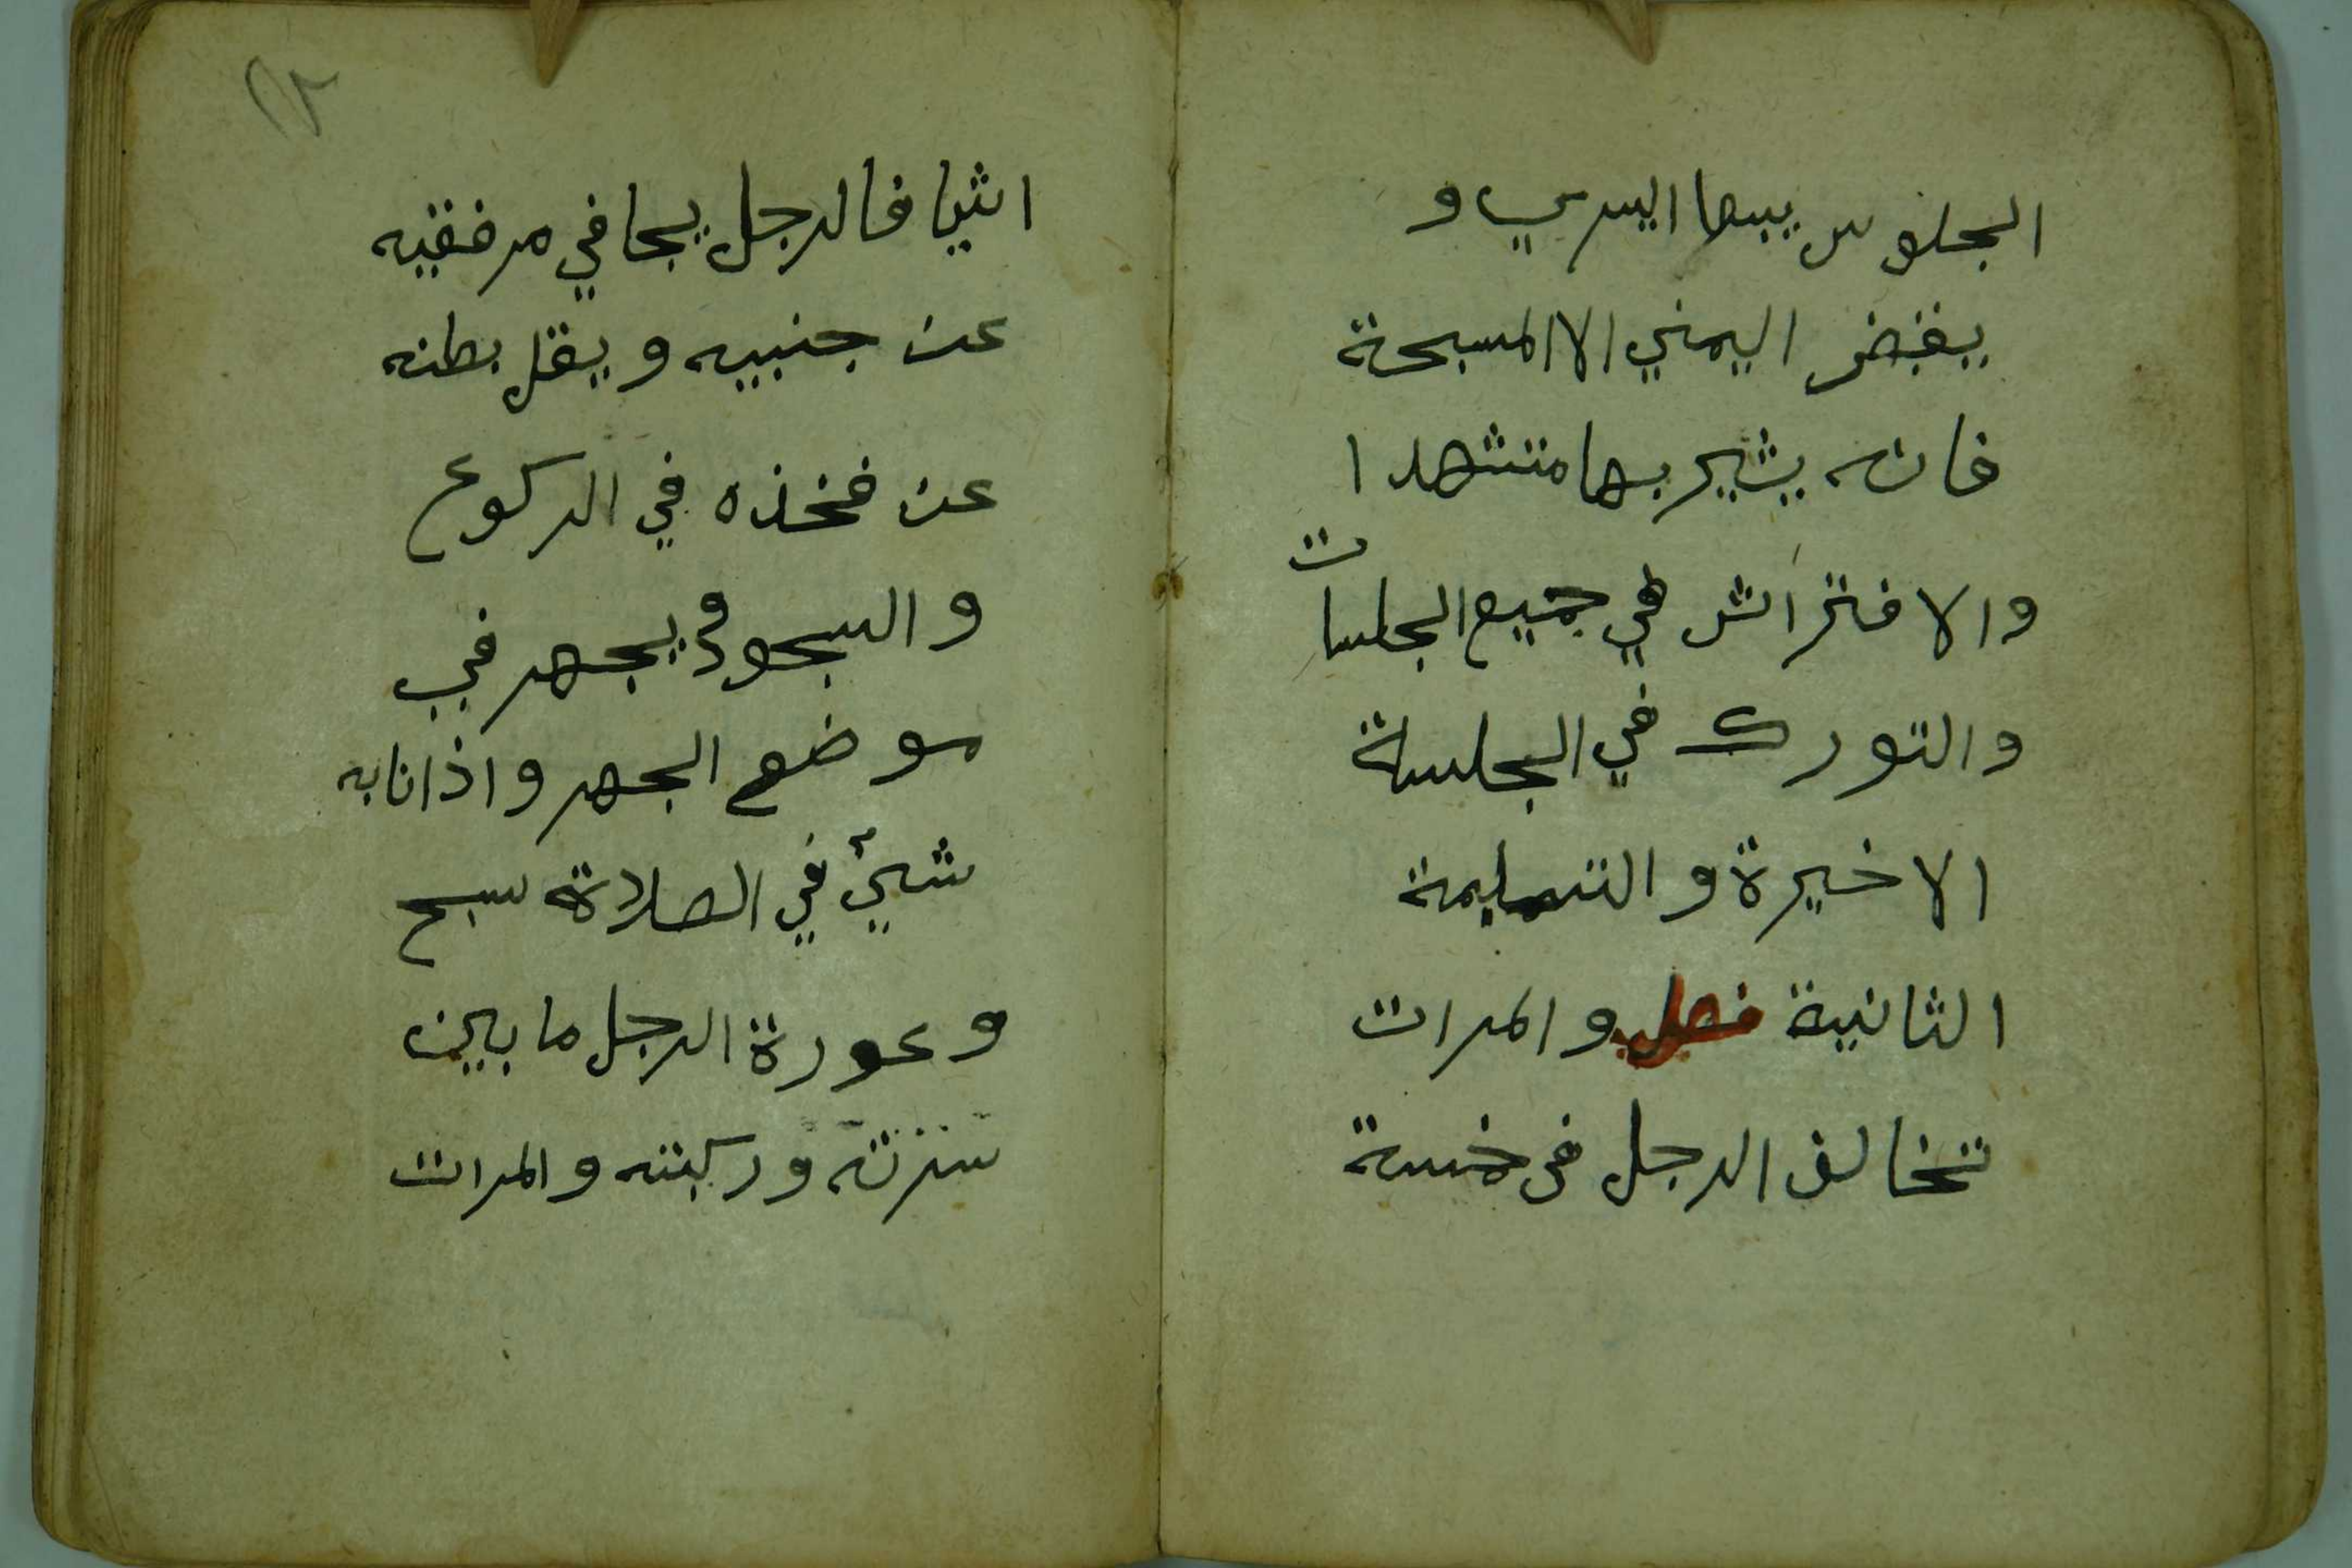 الجلوس يبسها اليسري و
يقبض اليمني الا المسبحة
فانه يشير بها متشهدا
والافتراش في جميع الجلسات
والتورك في الجلسة
الاخيرة والتسليمة
الثانية فصل والمرات
تخالف الرجل في خمسة
اشيا فالرجل يجافي مرفقيه
عن جنبيه ويقل بطنه
عن فخذه في الركوع
والسجود ويجهر في
موضع الجهر واذا نابه
شيئ في الصلاة سبح
وعورة الرجل ما بين
سترته وركبته والمرات